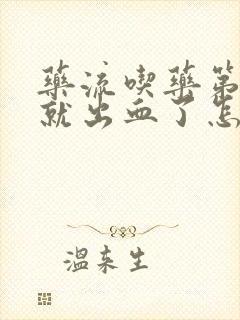 藥流喫藥第
就出血了怎
溫來生